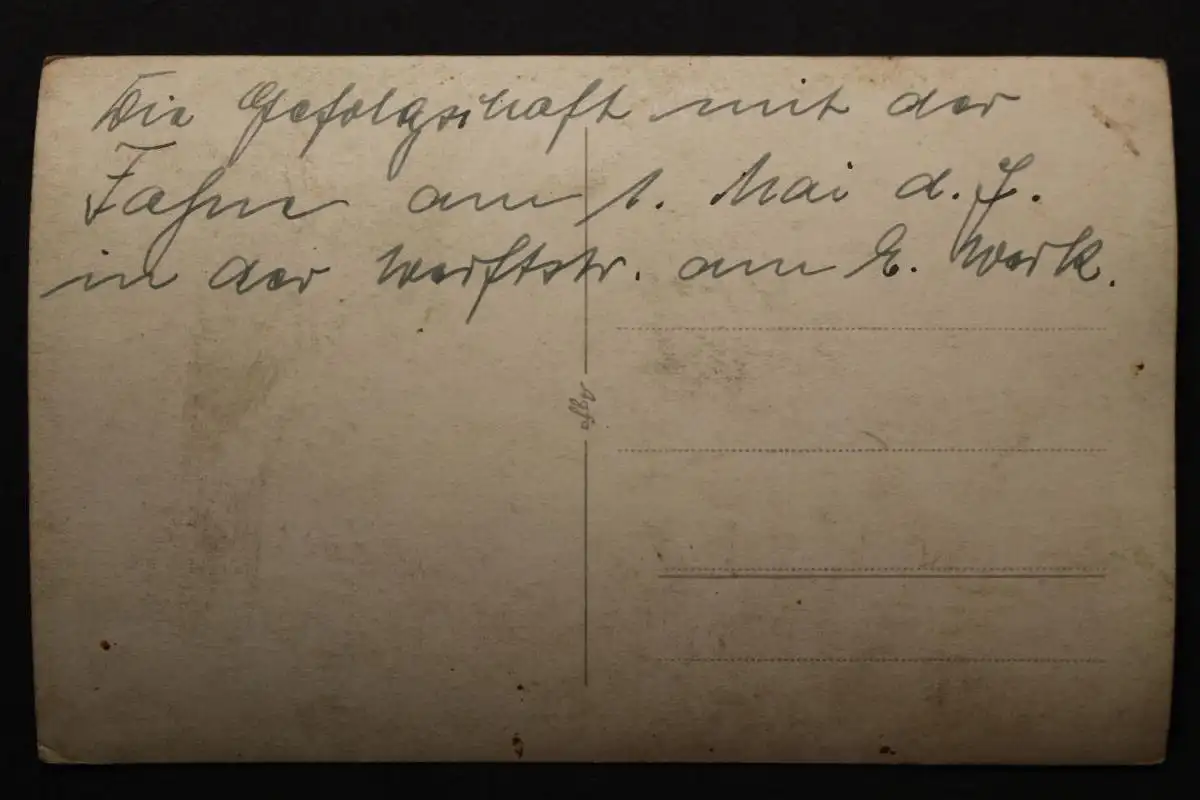 Die Gefolgschaft mit der
Fahne am 1. Mai d. J.
in der Werftstr. am E. Werk.
Agfa